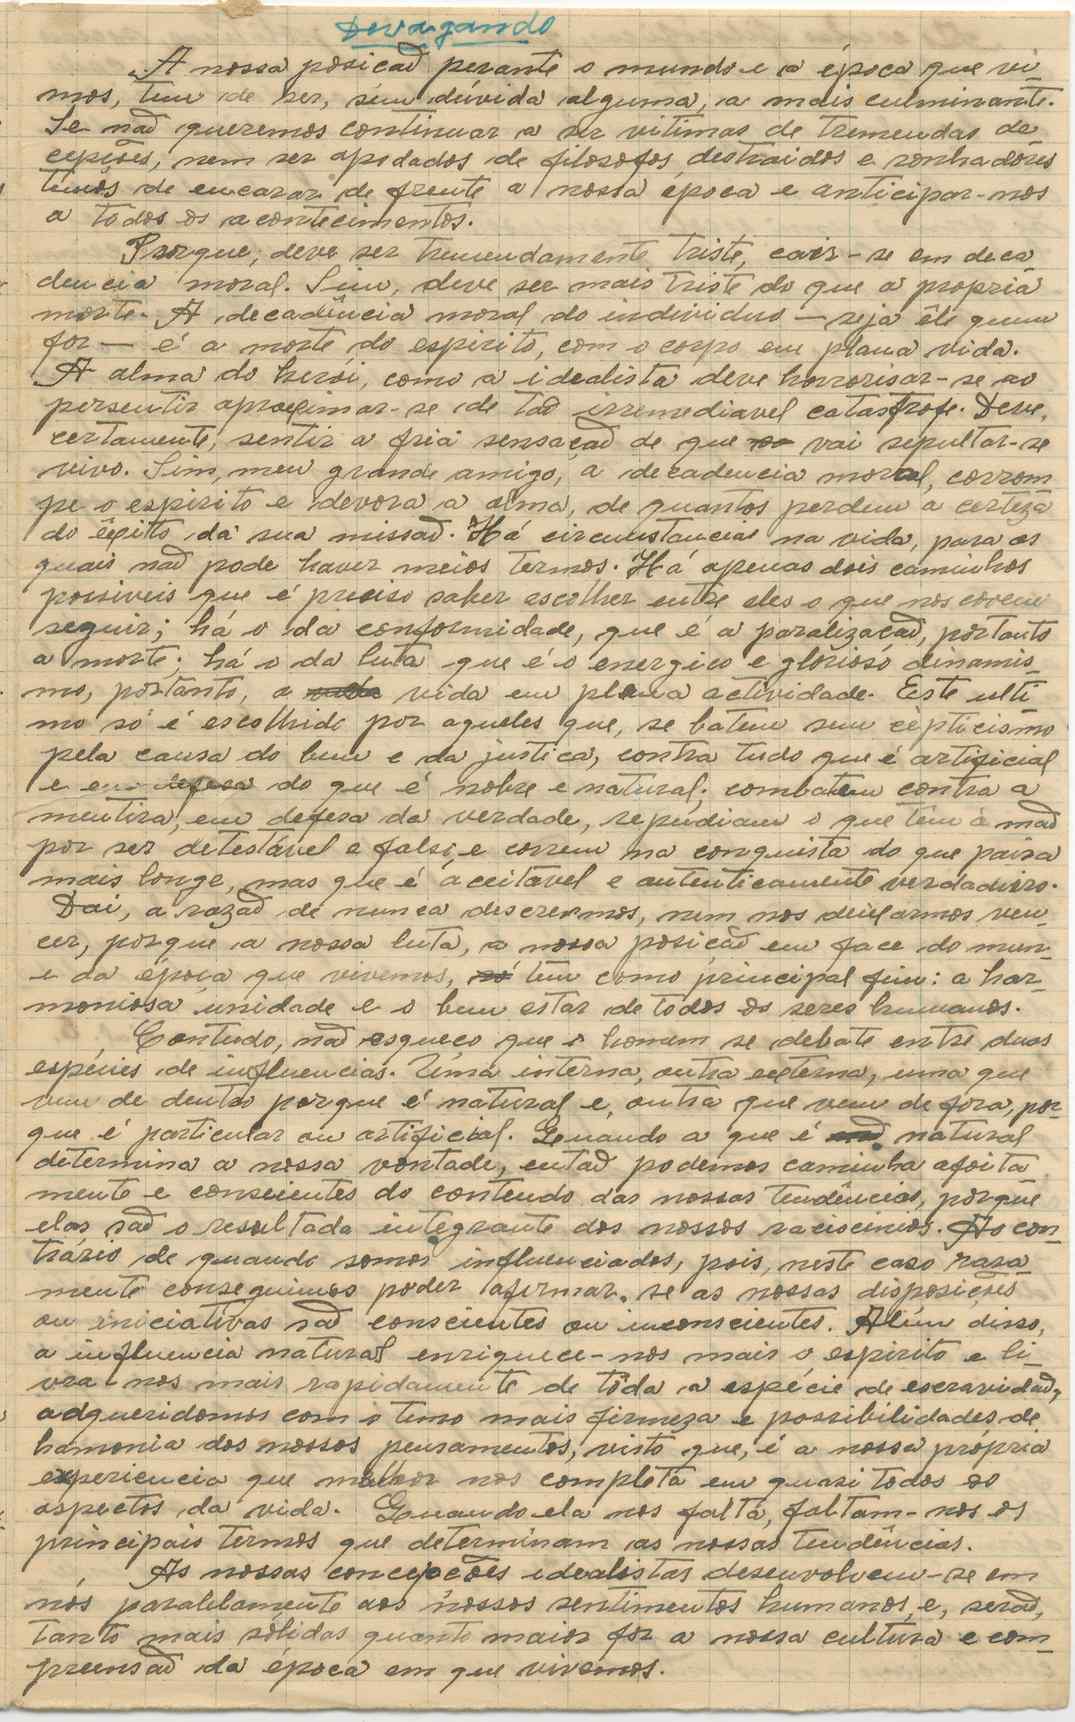 Devagando
A nossa posicaõ perante o mundo e a época que vi-
mos, tem de ser, sem duvida alguma, a mais culminante.
Se naõ queremos continuar a ser vitimas de tremendas de
cepiões, nem ser apodados de filosofos, destraidos e sonhadores
temos de encarar de frente a nossa época e anticipar-nos
a todos os acontecimentos.
Porque, deve ser tremendamente triste, cair-se em deca
dencia moral. Sim, deve ser mais triste do que a propria
morte. A decadência moral do individuo — seja êle quem
for — é a morte do espirito, com o corpo em plena vida.
A alma do heroi, como a idealista deve horrorisar-se ao
persentir aproximar-se de taõ irremediavel catastrofe. Deve,
certamente, sentir a fria sensacaõ de que vai sepultar-se
vivo. Sim, meu grande amigo, a decadencia moral, corrom
pe o espirito e devora a alma, de quantos perdem a certeza
do êxito da sua missaõ. Há circunstancias na vida, para as
quais naõ pode haver meios termos. Há apenas dois caminhos
possiveis que é preciso saber escolher entre eles o que nos convem
seguir; há o da conformidade, que é a paralizacaõ, portanto
a morte; há o da luta que é o energico e glorioso dinamis-
mo, portanto, a vida em plena actividade. Este ulti-
mo só é escolhido por aqueles que, se batem sem cépticismo
pela causa do bem e da justica, contra tudo que é artificial
e em defesa do que é nobre e natural; combatem contra a
mentira, em defesa da verdade, repudiam o que têm à maõ
por ser detestável e falso, e correm na conquista do que paira
mais longe, mas que é aceitavel e autenticamente verdadeiro.
Dai, a razaõ de nunca descrermos, nem nos deixarmos ven-
cer, porque a nossa luta, a nossa posicaõ em face do mun-
e da época que vivemos, tem como principal fim: a har-
moniosa unidade e o bem estar de todos os seres humanos.
Contudo, naõ esqueco que o homem se debate entre duas
espécies de influencias. Uma interna, outra externa, uma que
vem de dentro porque é natural e, outra que vem de fora, por-
que é particular ou artificial. Quando a que é natural
determina a nossa vontade, entaõ podemos caminha afoita
mente e conscientes do conteudo das nossas tendências, porque
elas saõ o resultado integrante dos nossos raciocinios. Ao con-
trário de quando somos influenciados, pois, neste caso rara
mente conseguimos poder afirmar, se as nossas disposicões
ou iniciativas saõ conscientes ou inconscientes. Além disso,
a influencia natural enriquece-nos mais o espirito e li-
vra-nos mais rapidamente de tôda a espécie de escravidaõ,
adqueridomos com o temo mais firmeza e possibilidades de
hamonia dos nossos pensamentos, visto que, é a nossa própria
experiencia que melhor nos completa em quasi todos os
aspectos da vida. Quando ela nos falta, faltam-nos os
principais termos que determinam as nossas tendências.
As nossas concepcões idealistas desenvolvem-se em
nós paralelamente aos nossos sentimentos humanos, e, seraõ,
tanto mais sólidas quanto maior for a nossa cultura e com-
preensaõ da época em que vivemos.